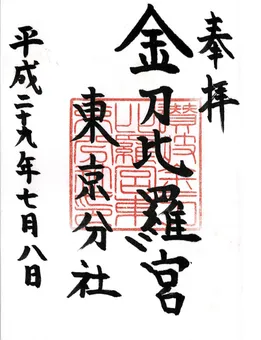 奉拝
金刀比羅宮
東京分社
平成二十九年七月八日